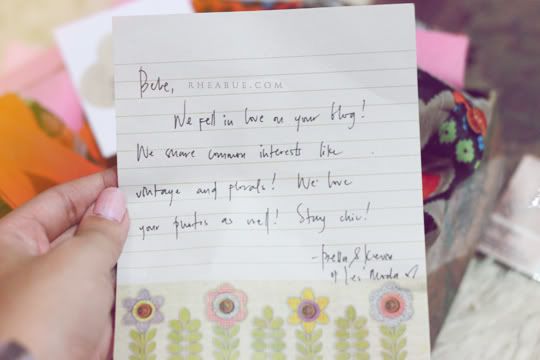 Bebe,
RHEABUE.COM
We fell in love on your blog!
We share common interests like
vintage and florals! We love
your photos as well! Stay chic!
- Bella &
of